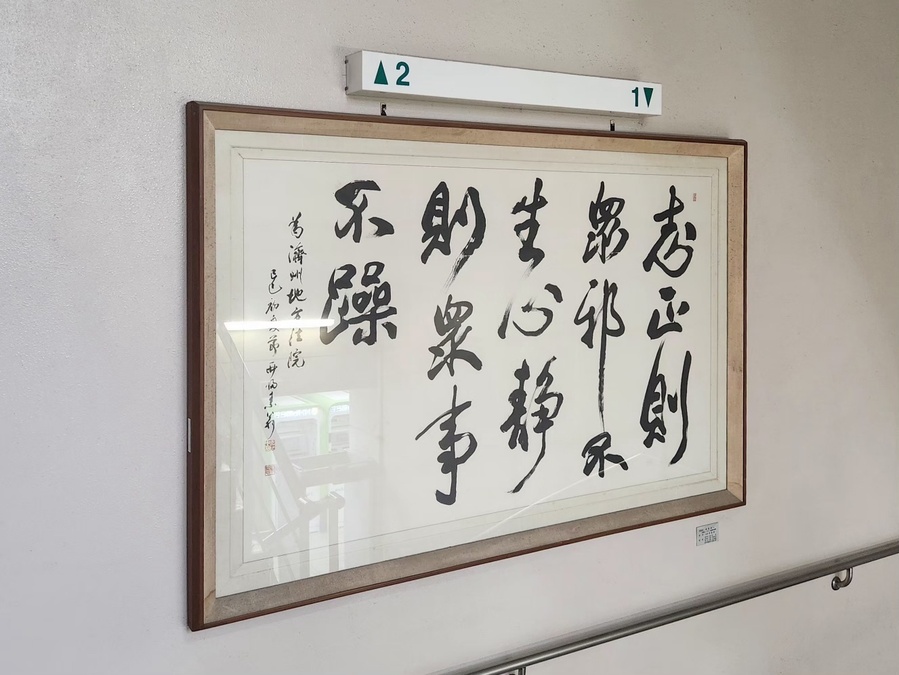 ▲2 1▼
志正則
衆邪不
生心靜
則衆事
不躁
為濟州地方法院
己巳